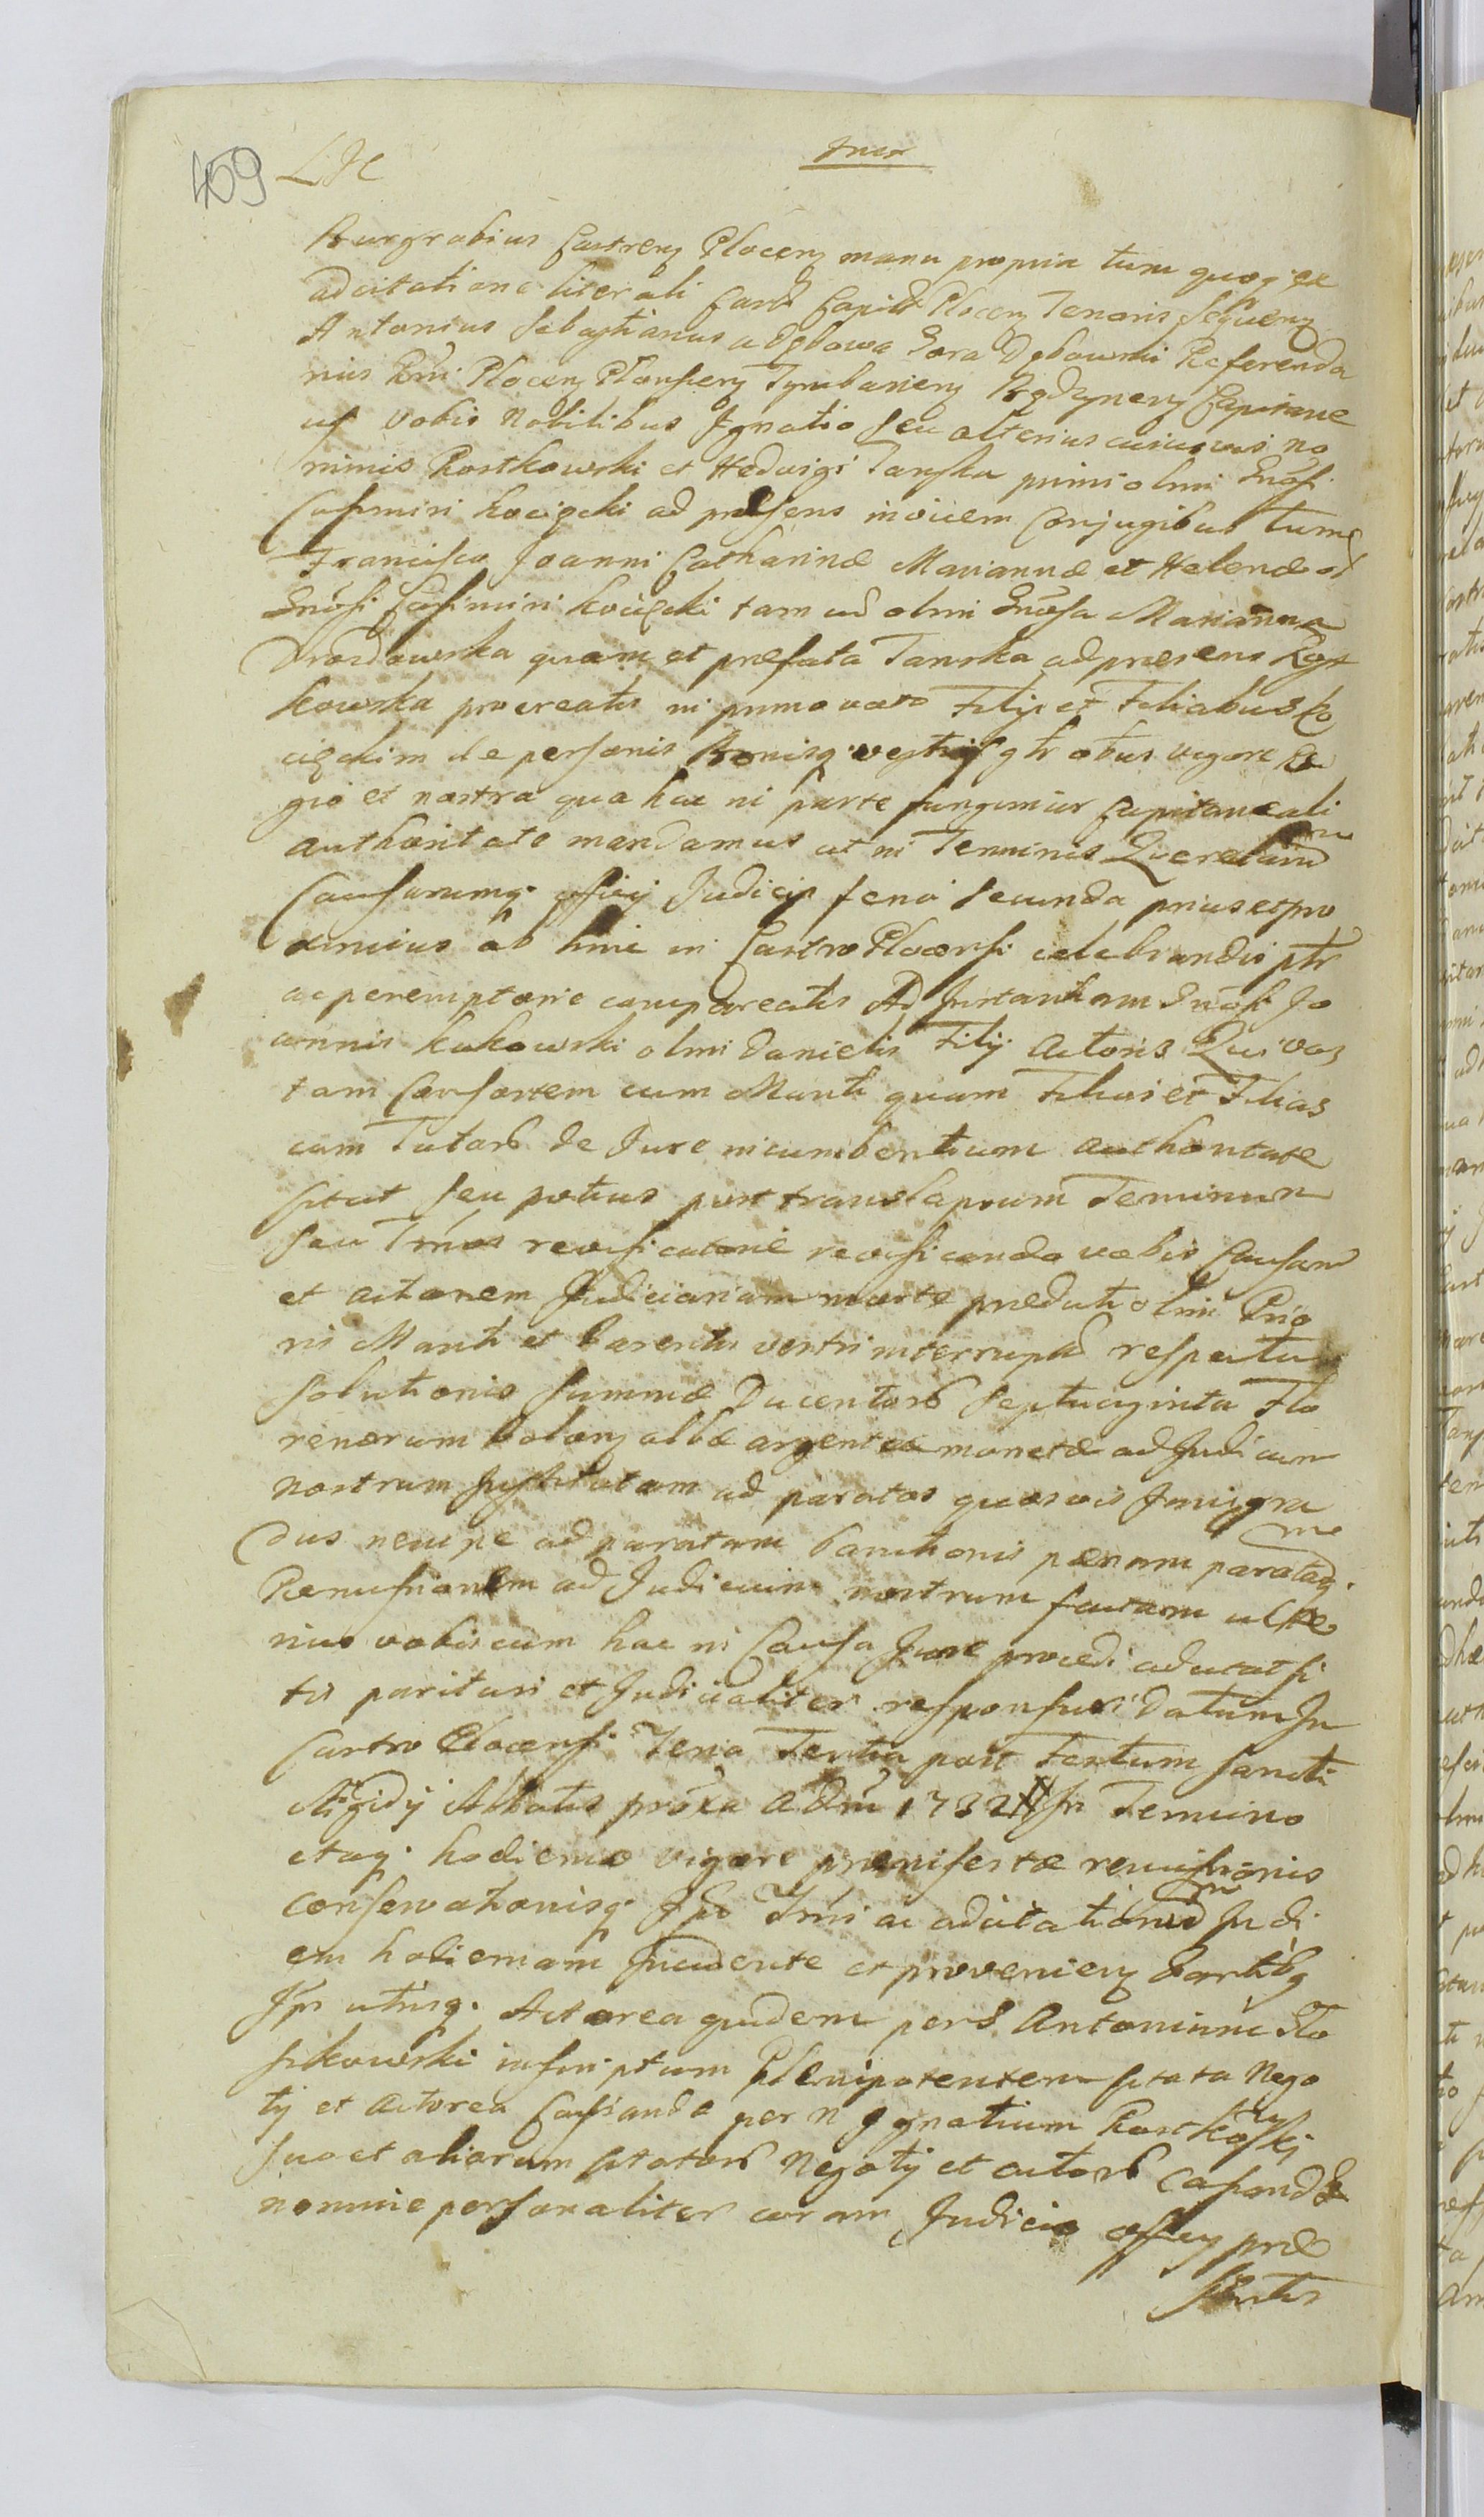 409
Inter
Burgrabius Castren Plocen manu propria tum quoq ex
adcitatione literali Capitt Plocen Tenoris sequen
Antonius Sebastianus a Dębowa Gora Dębowski Referenda
rius Rni Plocen Tymbarien Capitane
us Vobis Nobilibus Ignatio seu alterius cuiusvis no
minis Rostkowski et Hedvigi Tanska primi olim Gnosi
Casimiri Kocięcki ad præsens invicem Conjugibus tum
Francisco Joanni Catharinæ Mariannæ et Helenæ
Gnosi Casimiri Kocięcki tam cum olim Gnosa Marianna
Drozdowska quam et præfata Tanska ad præsens Rost
kowska procreatis in primo voto Filijs et Filiabus Ko
cięckim de personis Bonisq vestris obus vigore Re
gio et nostra qua hac in parte fungimur Capitaneali
authoritate mandamus ut in Terminis Querelarum
Causarumq officij Judicij feria secunda prius et pro
ximius ab hinc in Castro Plocensi celebrandis ptr
ac peremptorie compareatis Ad Instantiam Gnosi Jo
annis Kukowski olim Danielis Filij Actoris Qui vos
tam Consortem cum Marito quam Filios et Filias
cum Tutorb de Jure incumbentium authoritate
seu potius post translapsum Terminum
seu Tmos vobis Causam
et actorem Judiciariam morte prædicti olim Prio
ris Mariti et Parentis vestri interruptâ respectu
solutionis summæ Ducentorb septuaginta Flo
renorum Polon albæ argenteæ monetæ ad Judicium
nostrum Institutam ad paratos quosvis Juris gra
dus nempe ad paratam banitionis pœnam paratamq
Remissionem ad Judicium nostrum factam ulte
rius vobiscum hac in Causa Jure procedi adcitat si
tis parituri et Judicialiter responsuri Datum In
Castro Plocensi Feria Tertia post Festum Sancti
Ægidij Abbatis proxa A Dni 1732 In Termino
itaq hodierno vigore præmissæ remissionis
conservationisq Ipo Tmi ac adcitationum In di
em hodiernam Incidente et provenien Partibq
Ips utrisq Actorea quidem pers Antonium Sto
sikowski infrascriptum Plenipotentem citata Nego
tij et Actorea Causanda per N Ignatium Rostkoski
suo et aliorum citatorb Negotij et actorb
nomine personaliter coram Judicio præ
sentis